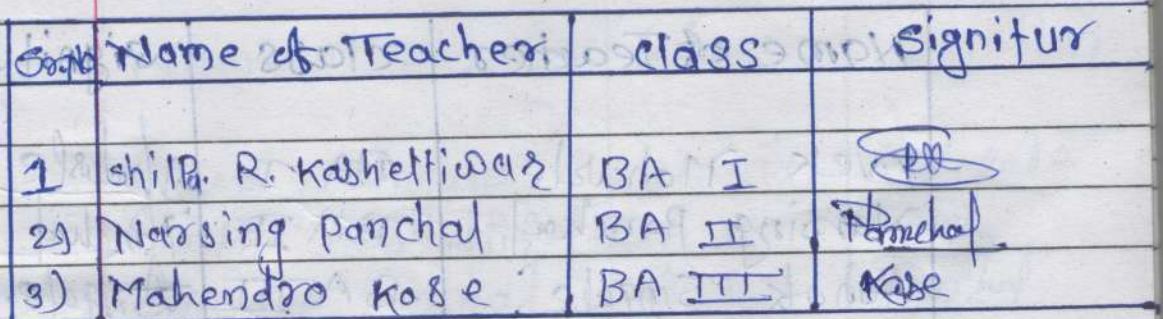 Sr.No Name of Teacher class signitur
1 shilpa. R. Kashettiwar BA I
2) Narsing Panchal BA II Panchal
3) Mahendro Kose BA III Kose